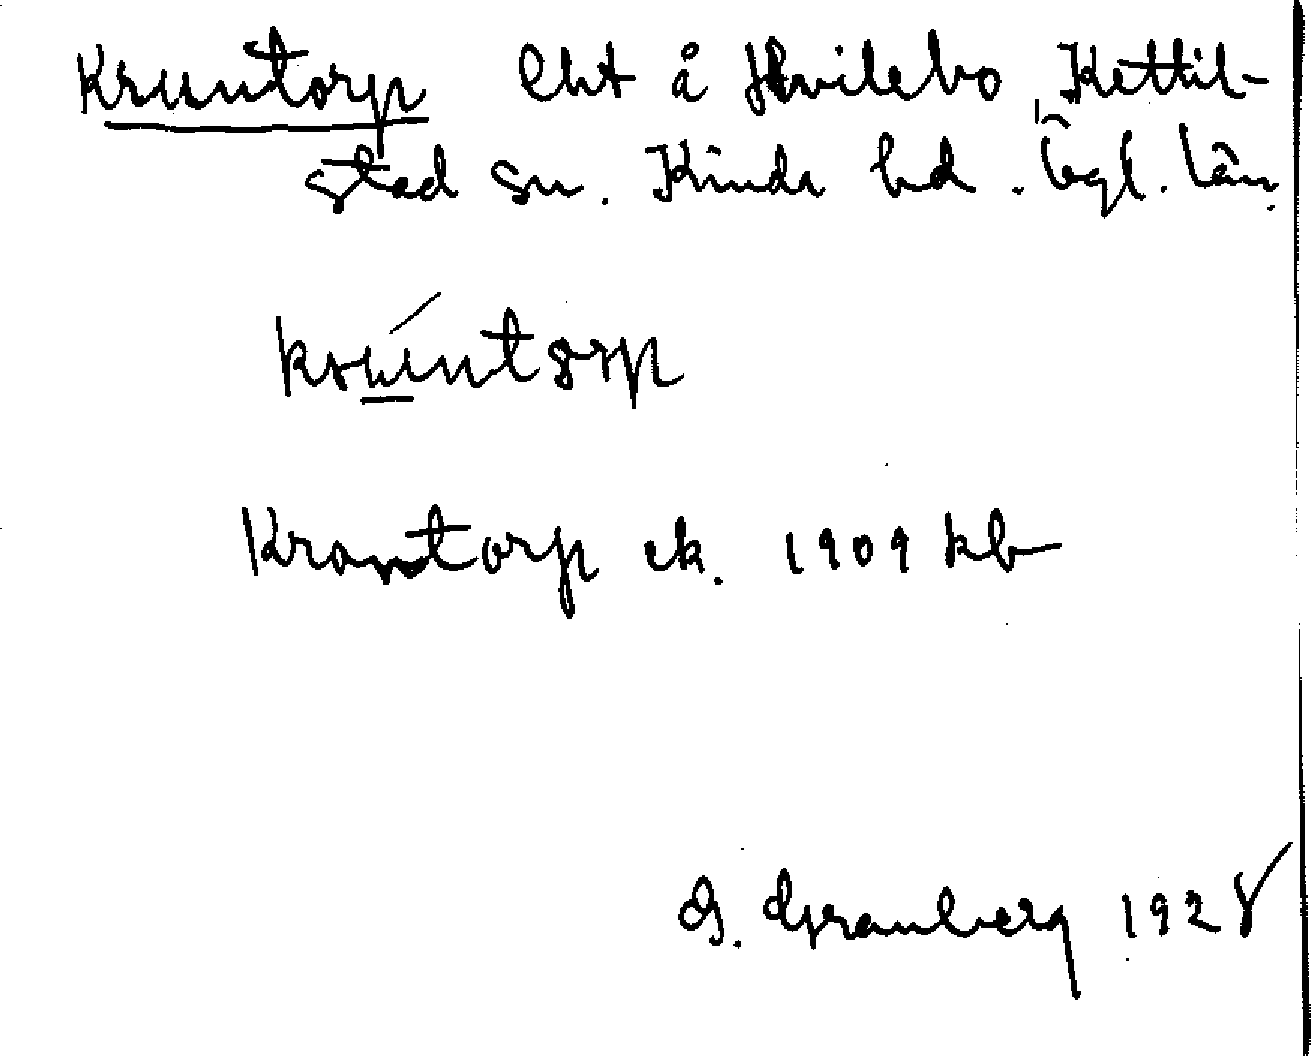 Kruntorp lht å Hvilebo, Kettil-
stad sn. Kinda hd. Ögl. län.
kruntorp
Krontorp ek. 1909 kb
G. Granberg 1928